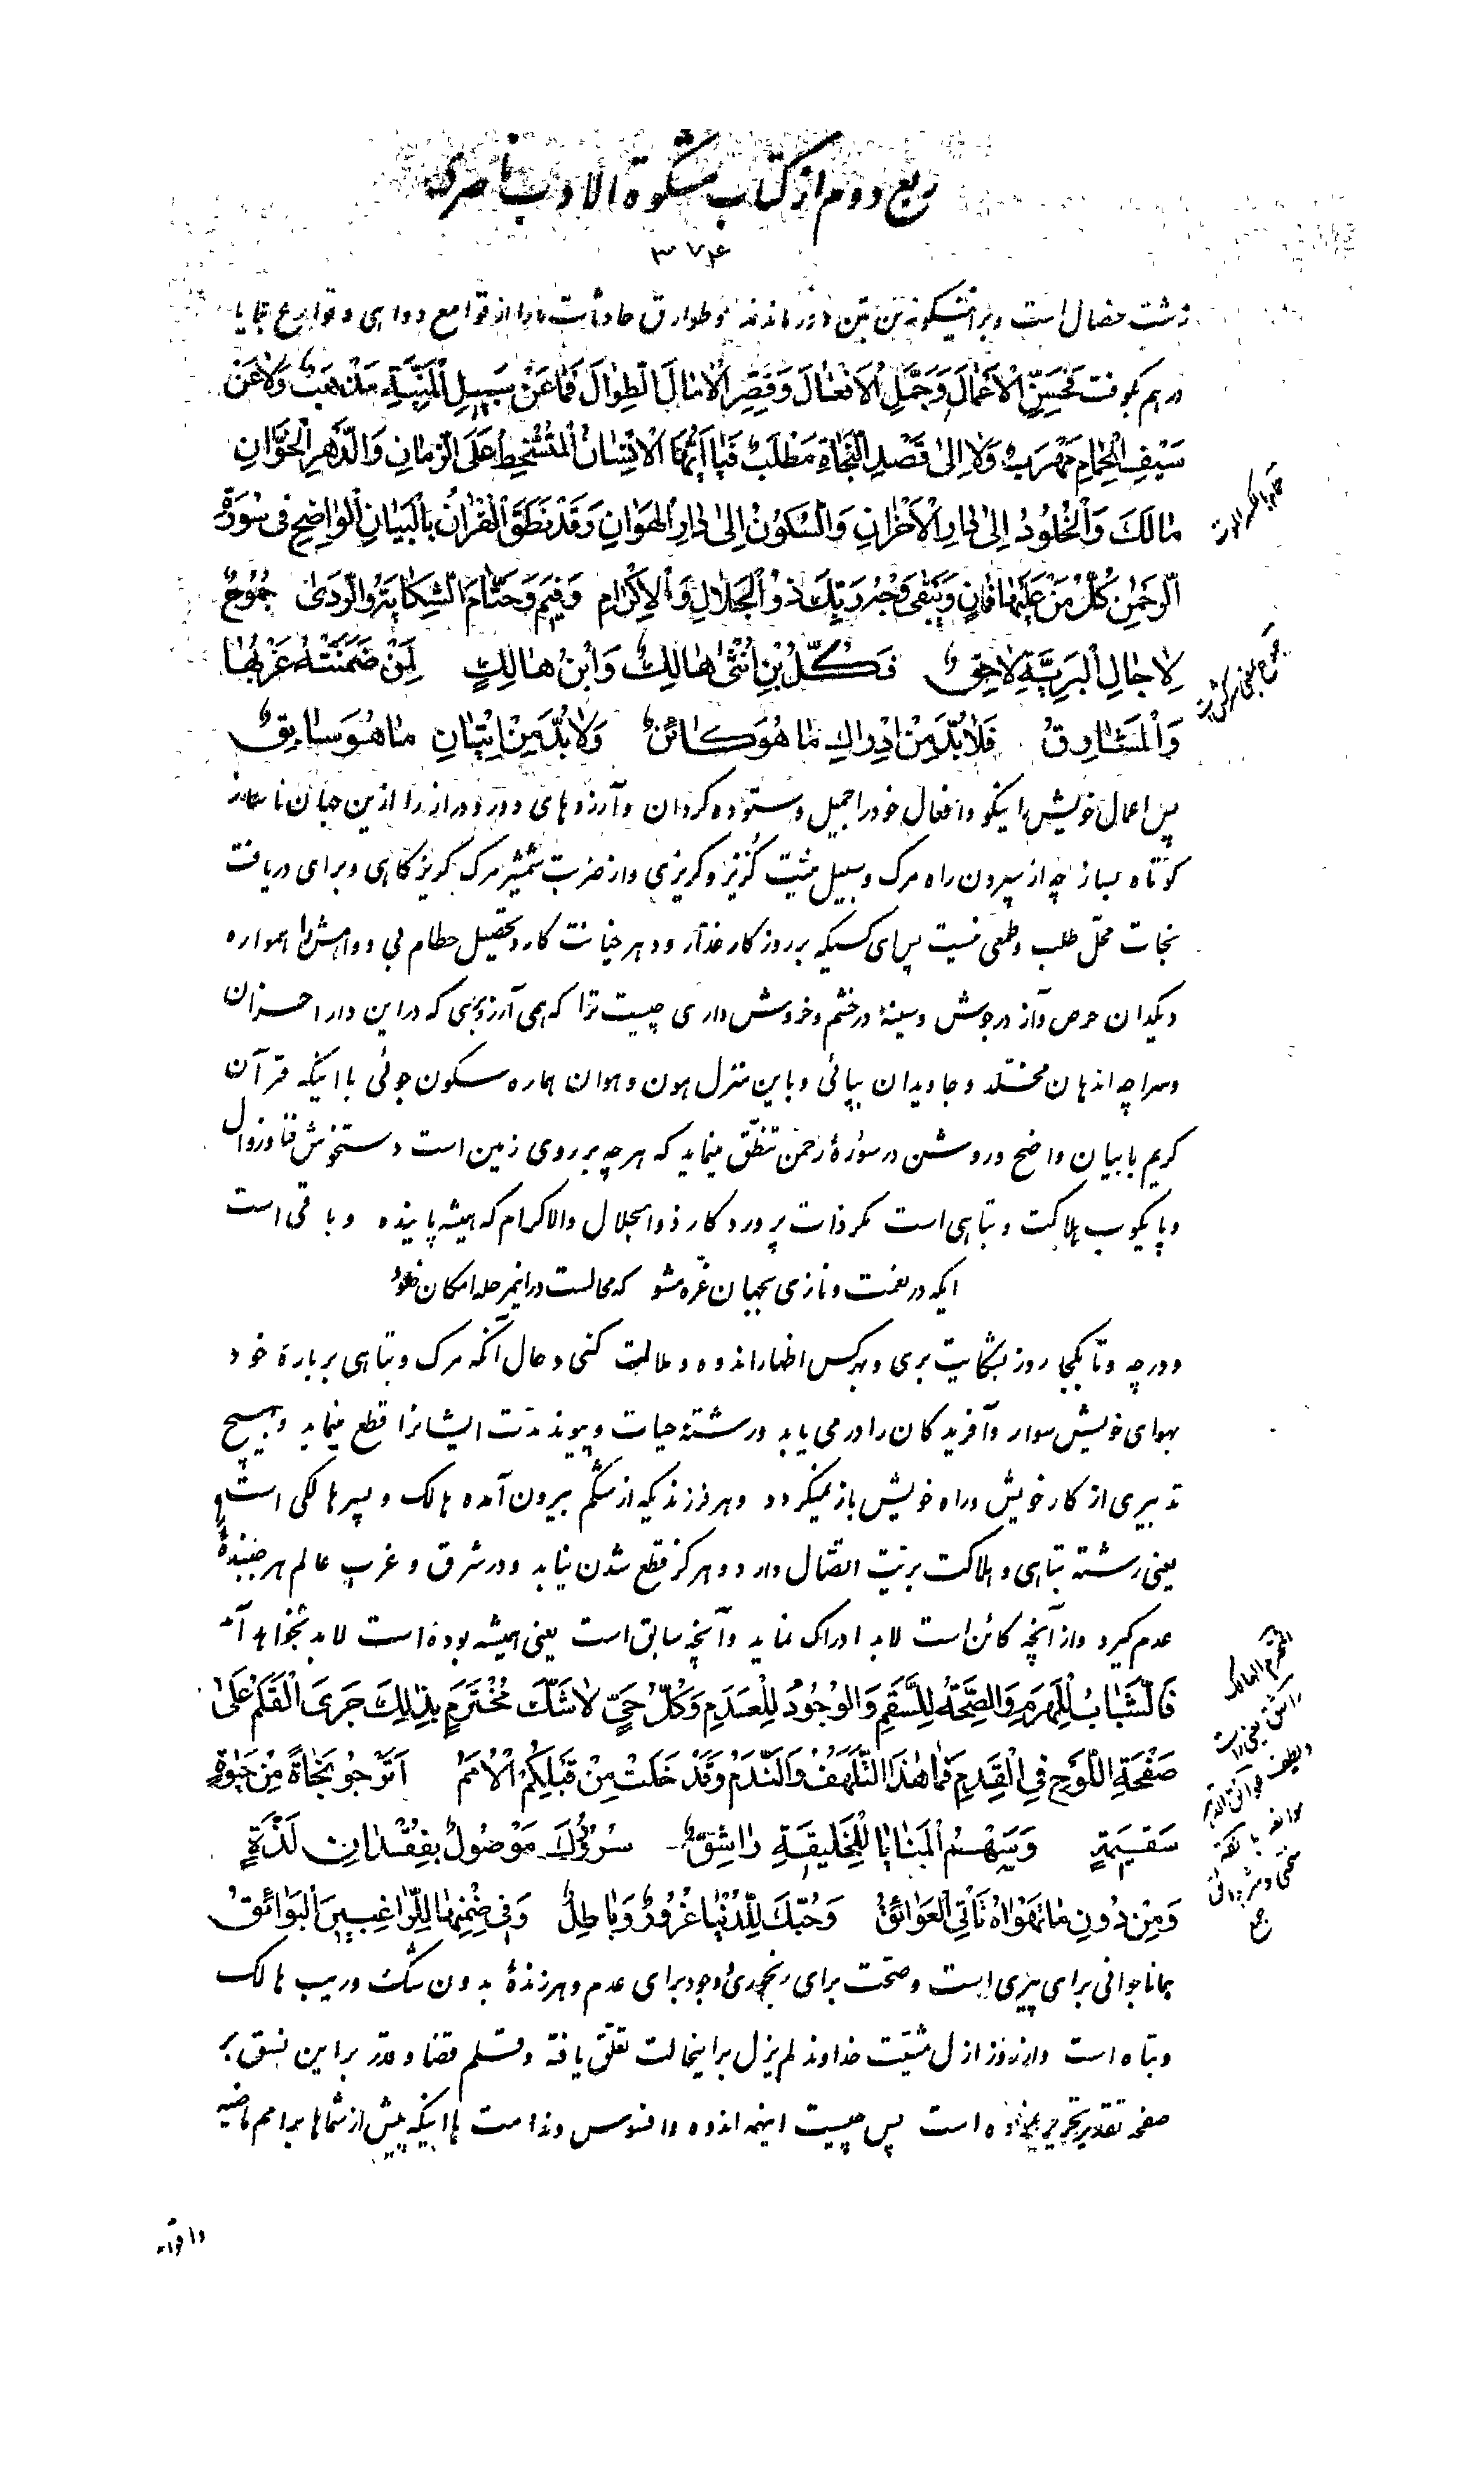 ربع دوم از کتاب مشکوة الادب ناصری
۳۷۴
زشت خصال است و بر اینگونه دور ماندند و طوارق حادثات ما را از قوامع دواهی و قوارع بلایا
درهم کوفت فَحَسِّنِ الْاَعْمالَ وَجَمِّلِ الْاَفْعالَ وَقَصِّرِ الْاٰمالَ الطِّوالَ فَمٰا عَنْ سَبيلِ الْمَنِيَّةِ مَذْهَبٌ وَلٰا عَنْ
سَيْفِ الْحِمامِ مَهْرَبٌ وَلٰا اِلىٰ قَصْدِ النَّجٰاةِ مَطْلَبٌ فَيٰا اَيُّهَا الْاِنْسٰانُ الْمُتَسَخِّطُ عَلَى الزَّمٰانِ وَالدَّهْرِ الْخَوّٰانِ
مٰا لَكَ وَالْخُلُودُ اِلىٰ دٰارِ الْاَحْزٰانِ وَالسُّكُونُ اِلىٰ دٰارِ الْهَوٰانِ وَقَدْ نَطَقَ الْقُرْاٰنُ بِالْبَيٰانِ الْوٰاضِحِ فى سُورَةِ
الرَّحْمٰنِ كُلُّ مَنْ عَلَيْهٰا فٰانٍ وَيَبْقىٰ وَجْهُ رَبِّكَ ذُو الْجَلٰالِ وَالْاِكْرٰامِ وَفيمَ وَحَتّٰامَ الشِّكٰايَةُ وَالرَّدىٰ جَمُوحٌ
لِاٰجٰالِ الْبَرِيَّةِ لٰاحِقٌ فَكُلُّ بْنِ اُنْثىٰ هٰالِكٌ وَابْنُ هٰالِكٍ لِمَنْ ضَمَّنَتْهُ غَرْبُهٰا
وَالْمَشٰارِقُ فَلٰابُدَّ مِنْ اِدْرٰاكِ مٰا هُوَ كٰائِنٌ وَلٰابُدَّ مِنْ اِتْيٰانِ مٰا هُوَ سٰابِقٌ
پس اعمال خویش را نیکو و افعال خود را جمیل و ستوده گردان و آرزوهای دور و دراز را ازین جهان ناساز
کوتاه بساز چه از سپردن راه مرگ و سبیل منیت گریز و گریزی و از ضربت شمشیر مرگ گریزگاهی و برای دریافت
نجات محل طلب و طمعی نیست پس ای کسیکه بر روزگار غدار و دهر خیانت کار و تحصیل حطام بی دوامش را همواره
دیگدان حرص و آز در جوش و سینه در خشم و خروش داری چیست ترا که همی آرزو بری که در این دار احزان
و سراچه اذهان مخلد و جاویدان بپائی و باین منزل هون و هوان هماره سکون جوئی با اینکه قرآن
کریم با بیان واضح و روشن در سورۀ رحمن تنطق مینماید که هر چه بر روی زمین است دستخوش فنا و زوال
و پایکوب هلاکت و تباهی است مگر ذات پروردگار ذوالجلال والاکرام که همیشه پاینده و باقی است
ایکه در نعمت و نازی بجهان غره مشو که محالست در اینمرحله امکان خلود
و در چه و تا بکجا روز بشکایت بری و بهرکس اظهار اندوه و ملالت کنی و حال آنکه مرگ و تباهی بر بارۀ خود
بهوای خویش سوار و آفریدگان را در می یابد و رشتۀ حیات و پیوند مدت ایشانرا قطع مینماید و بهیچ
تدبیری از کار خویش و راه خویش باز نمیگردد و هر فرزندیکه از شکم بیرون آمده هالک و پسر هالکی است
یعنی رشته تباهی و هلاکت بریت اتصال دارد و هرگز قطع شدن نیابد و در شرق و غرب عالم هر جنبندۀ
عدم گیرد و از آنچه کائن است لابد ادراک نماید و آنچه سابق است یعنی همیشه بوده است لابد بخواهد آمد
فَالشَّبٰابُ لِلْهَرَمِ وَالصِّحَّةُ لِلسَّقَمِ وَالْوُجُودُ لِلْعَدَمِ وَكُلُّ حَىٍّ لٰاشَكَّ مُخْتَرَمٌ بِذٰلِكَ جَرَى الْقَلَمُ عَلىٰ
صَفْحَةِ اللَّوْحِ فِى الْقِدَمِ فَمٰا هٰذَا التَّلَهُّفُ وَالنَّدَمُ وَقَدْ خَلَتْ مِنْ قَبْلِكُمُ الْاُمَمُ اَتَرْجُو نَجٰاةً مِنْ حَيٰوةٍ
سَقيمَةٍ وَسَهْمُ الْمَنٰايٰا لِلْخَليقَةِ رٰاشِقٌ سُرُورُكَ مَوْصُولٌ بِفِقْدٰانِ لَذَّةٍ
وَمِنْ دُونِ مٰا تَهْوٰاهُ تَأْتِى الْعَوٰائِقُ وَحُبُّكَ لِلدُّنْيٰا غُرُورٌ وَبٰاطِلٌ وَفى ضِمْنِهٰا لِلرّٰاغِبينَ الْبَوٰائِقُ
همانا جوانی برای پیری است و صحت برای رنجوری و وجود برای عدم و هر زندۀ بدون شک و ریب هالک
و تباه است و از روز ازل مشیت خداوند لم یزل بر اینحالت تعلق یافته و قلم قضا و قدر بر این نسق بر
صفحه تقدیر تحریر است پس چیست اینهمه اندوه و افسوس و ندامت با اینکه پیش از شماها بر امم ماضیه
حمام بالکسر